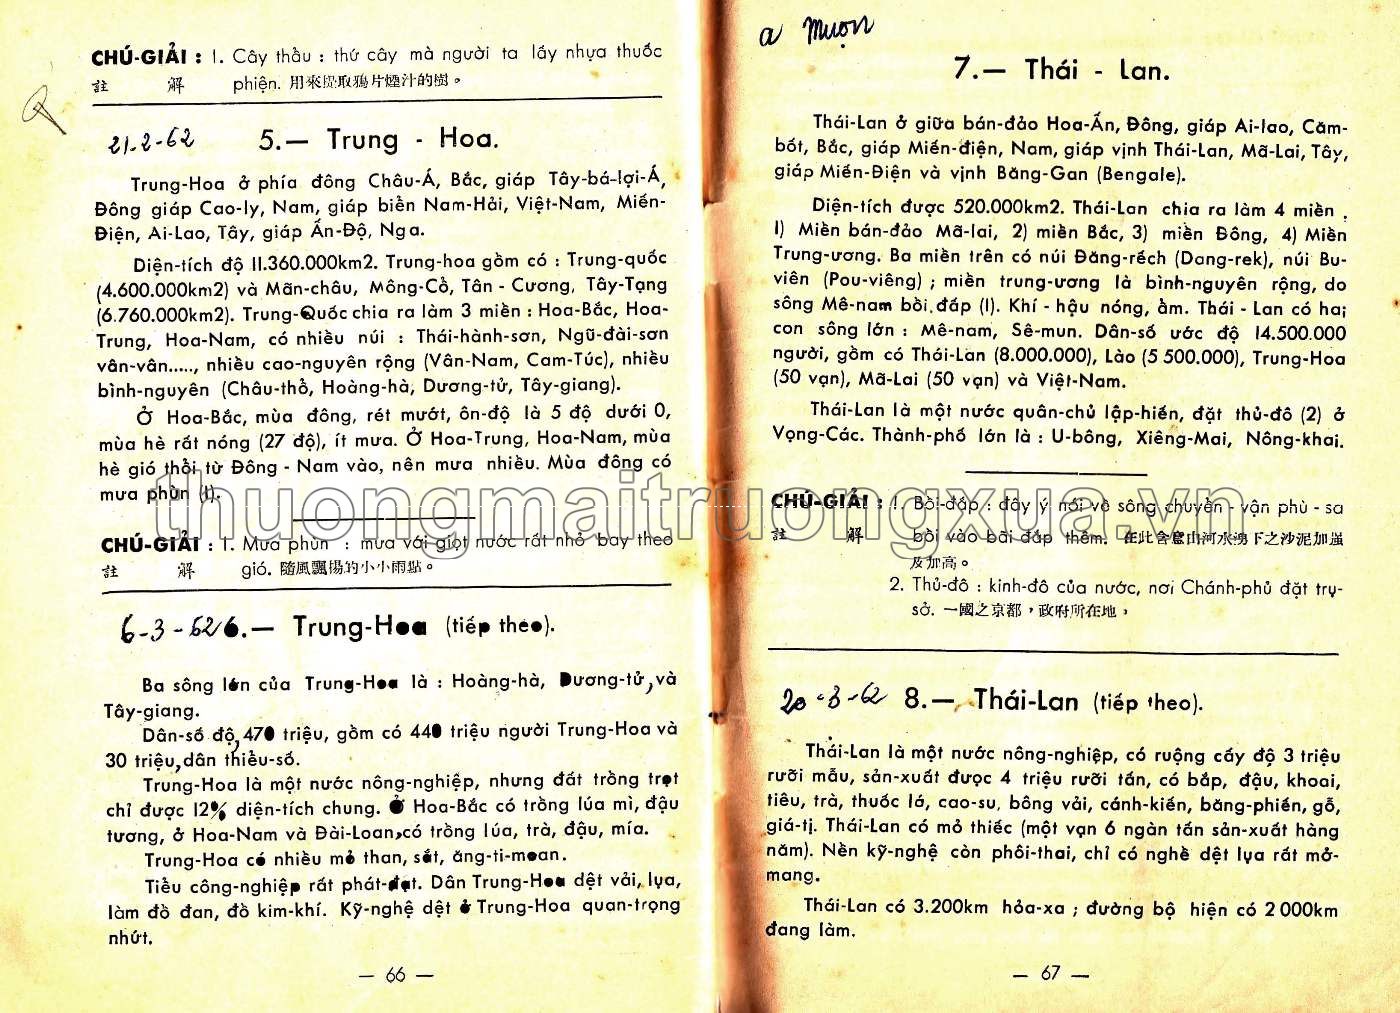 CHÚ-GIẢI : 1. Cây thầu : thứ cây mà người ta lấy nhựa thuốc
註 解 phiện. 用來提取鴉片煙汁的樹。
21-2-62 5.— Trung - Hoa.
Trung-Hoa ở phía đông Châu-Á, Bắc, giáp Tây-bá-lợi-Á,
Đông giáp Cao-ly, Nam, giáp biển Nam-Hải, Việt-Nam, Miến-
Điện, Ai-Lao, Tây, giáp Ấn-Độ, Nga.
Diện-tích độ 11.360.000km2. Trung-hoa gồm có : Trung-quốc
(4.600.000km2) và Mãn-châu, Mông-Cổ, Tân - Cương, Tây-Tạng
(6.760.000km2). Trung-Quốc chia ra làm 3 miền : Hoa-Bắc, Hoa-
Trung, Hoa-Nam, có nhiều núi : Thái-hành-sơn, Ngũ-đài-sơn
vân-vân....., nhiều cao-nguyên rộng (Vân-Nam, Cam-Túc), nhiều
bình-nguyên (Châu-thổ, Hoàng-hà, Dương-tử, Tây-giang).
Ở Hoa-Bắc, mùa đông, rét mướt, ôn-độ là 5 độ dưới 0,
mùa hè rất nóng (27 độ), ít mưa. Ở Hoa-Trung, Hoa-Nam, mùa
hè gió thổi từ Đông - Nam vào, nên mưa nhiều. Mùa đông có
mưa phùn (1).
CHÚ-GIẢI : 1. Mưa phùn : mưa với giọt nước rất nhỏ bay theo
註 解 gió. 隨風飄揚的小小雨點。
6-3-62 6.— Trung-Hoa (tiếp theo).
Ba sông lớn của Trung-Hoa là : Hoàng-hà, Dương-tử, và
Tây-giang.
Dân-số độ, 470 triệu, gồm có 440 triệu người Trung-Hoa và
30 triệu, dân thiểu-số.
Trung-Hoa là một nước nông-nghiệp, nhưng đất trồng trọt
chỉ được 12% diện-tích chung. Ở Hoa-Bắc có trồng lúa mì, đậu
tương, ở Hoa-Nam và Đài-Loan, có trồng lúa, trà, đậu, mía.
Trung-Hoa có nhiều mỏ than, sắt, ăng-ti-moan.
Tiểu công-nghiệp rất phát-đạt. Dân Trung-Hoa dệt vải, lụa,
làm đồ đan, đồ kim-khí. Kỹ-nghệ dệt ở Trung-Hoa quan-trọng
nhứt.
— 66 —
a Mượn
7.— Thái - Lan.
Thái-Lan ở giữa bán-đảo Hoa-Ấn, Đông, giáp Ai-lao, Căm-
bốt, Bắc, giáp Miến-điện, Nam, giáp vịnh Thái-Lan, Mã-Lai, Tây,
giáp Miến-Điện và vịnh Băng-Gan (Bengale).
Diện-tích được 520.000km2. Thái-Lan chia ra làm 4 miền .
1) Miền bán-đảo Mã-lai, 2) miền Bắc, 3) miền Đông, 4) Miền
Trung-ương. Ba miền trên có núi Đăng-rếch (Dang-rek), núi Bu-
viên (Pou-viêng) ; miền trung-ương là bình-nguyên rộng, do
sông Mê-nam bồi đắp (1). Khí - hậu nóng, ẩm. Thái - Lan có hai
con sông lớn : Mê-nam, Sê-mun. Dân-số ước độ 14.500.000
người, gồm có Thái-Làn (8.000.000), Lào (5 500.000), Trung-Hoa
(50 vạn), Mã-Lai (50 vạn) và Việt-Nam.
Thái-Lan là một nước quân-chủ lập-hiến, đặt thủ-đô (2) ở
Vọng-Các. Thành-phố lớn là : U-bông, Xiêng-Mai, Nông-khai.
CHÚ-GIẢI : 1. Bồi-đắp : đây ý nói về sông chuyển - vận phù - sa
註 解 bồi vào bãi đắp thêm. 在此含意山河水湧下之沙泥加強
及加高。
2. Thủ-đô : kinh-đô của nước, nơi Chánh-phủ đặt trụ-
sở. 一國之京都，政府所在地，
20-3-62 8.— Thái-Lan (tiếp theo).
Thái-Lan là một nước nông-nghiệp, có ruộng cấy độ 3 triệu
rưỡi mẫu, sản-xuất được 4 triệu rưỡi tấn, có bắp, đậu, khoai,
tiêu, trà, thuốc lá, cao-su, bông vải, cánh-kiến, băng-phiến, gỗ,
giá-tị. Thái-Lan có mỏ thiếc (một vạn 6 ngàn tấn sản-xuất hàng
năm). Nền kỹ-nghệ còn phôi-thai, chỉ có nghề dệt lụa rất mở-
mang.
Thái-Lan có 3.200km hỏa-xa ; đường bộ hiện có 2 000km
đang làm.
— 67 —
thuongmaitruongxua.vn